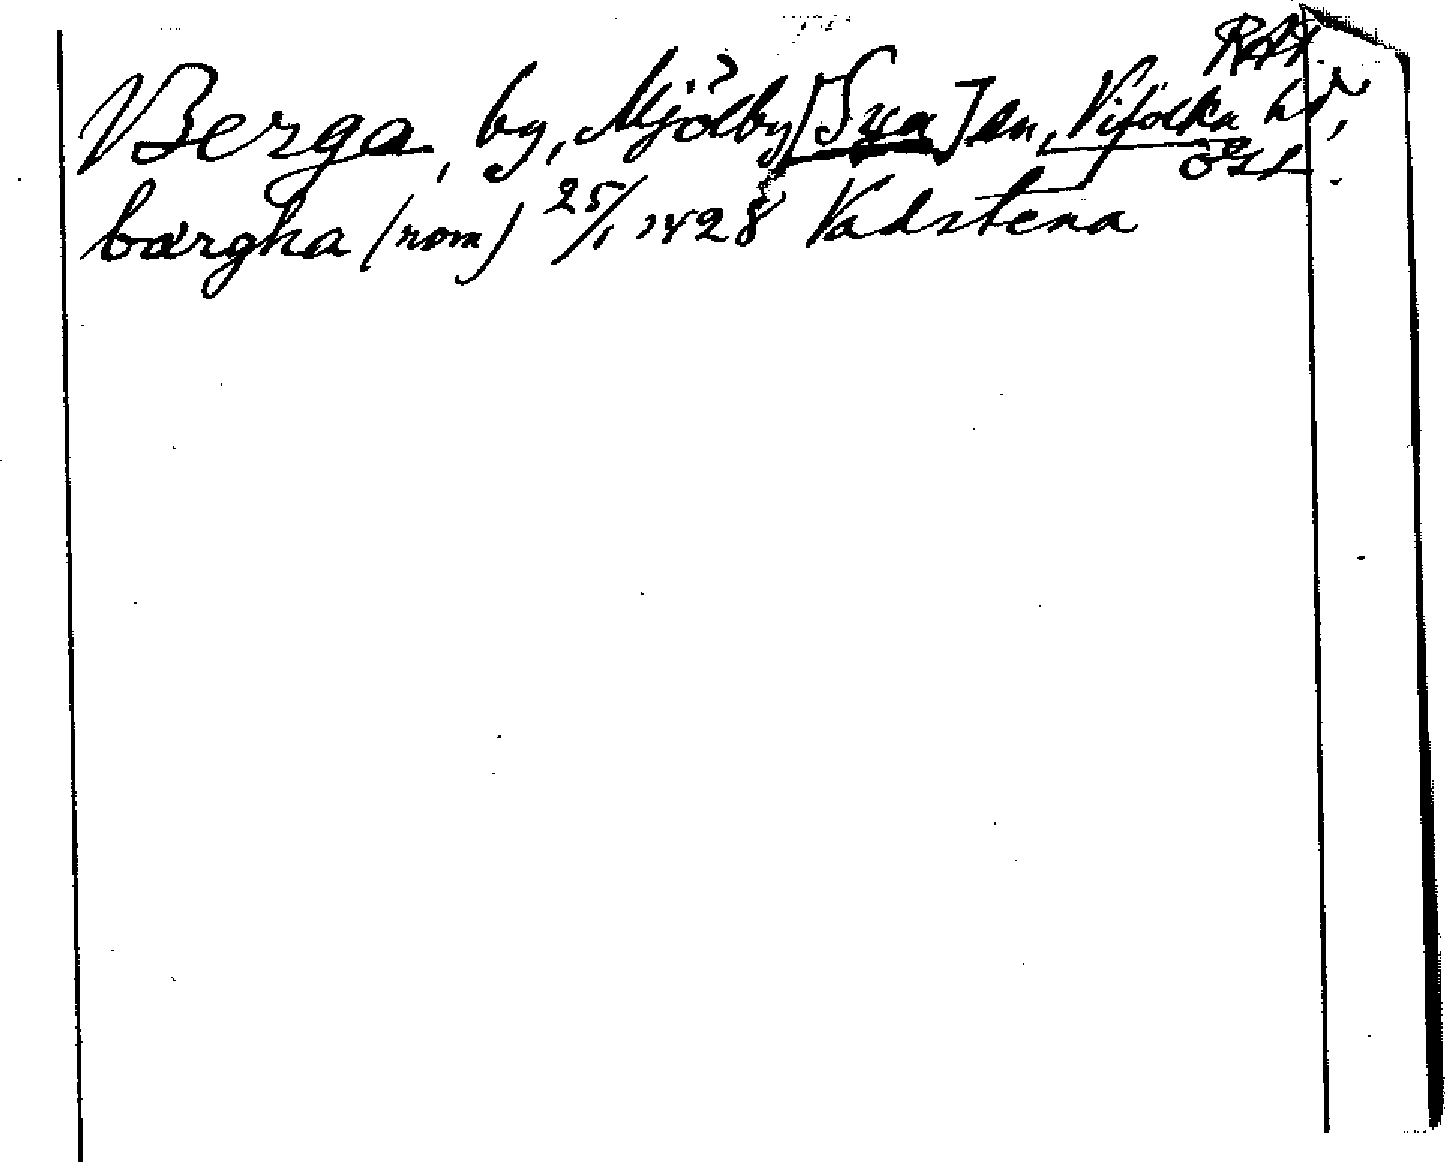 RAP
Berga, by, Mjölby [Sya] sn, Vifolka hd,
ÖGL
bærgha (nom) 25/1 1428 Vadstena